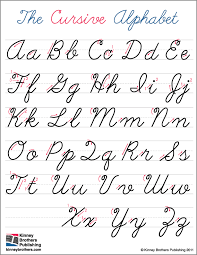 The Cursive Alphabet
Aa Bb Cc Dd Ee
Ff Gg Hh Ii Jj
Kk Ll Mm Nn
Oo Pp Qq Rr Ss
Tt Uu Vv Ww
Xx Yy Zz
Kinney
Brothers
Publishing
kinneybrothers.com
© Kinney Brothers Publishing 2011